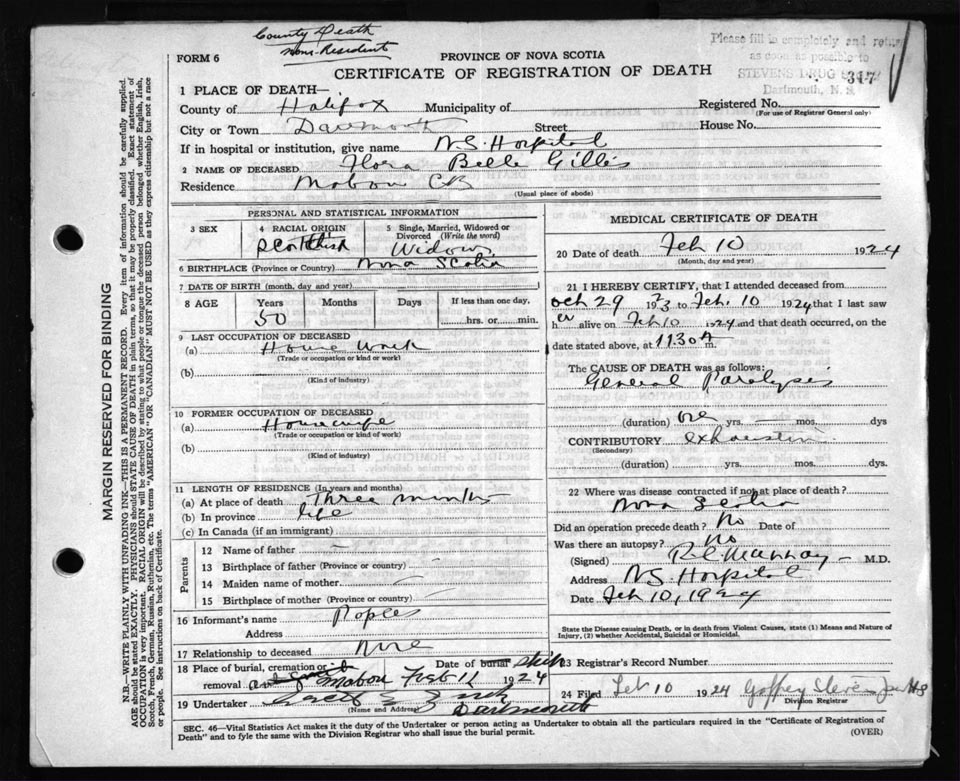 County Death
Non-Resident
Please fill in completely and return
as soon as possible to
STEVENS DRUG
Dartmouth, N. S.
317
FORM 6
PROVINCE OF NOVA SCOTIA
CERTIFICATE OF REGISTRATION OF DEATH
1 PLACE OF DEATH—
County of Halifax Municipality of Registered No.
(For use of Registrar General only)
City or Town Dartmouth Street House No.
If in hospital or institution, give name N.S. Hospital
2 NAME OF DECEASED Flora Belle Gillis
Residence Mabou CB
(Usual place of abode)
PERSONAL AND STATISTICAL INFORMATION
3 SEX 4 RACIAL ORIGIN 5 Single, Married, Widowed or
Divorced (Write the word)
Scottish Widow
6 BIRTHPLACE (Province or Country) Nova Scotia
7 DATE OF BIRTH (month, day and year)
8 AGE Years Months Days If less than one day,
50 hrs. or min.
9 LAST OCCUPATION OF DECEASED
(a) House Work
(Trade or occupation or kind of work)
(b)
(Kind of industry)
10 FORMER OCCUPATION OF DECEASED
(a) Housewife
(Trade or occupation or kind of work)
(b)
(Kind of industry)
11 LENGTH OF RESIDENCE (In years and months)
(a) At place of death Three months
(b) In province life
(c) In Canada (if an immigrant)
Parents
12 Name of father —
13 Birthplace of father (Province or country) —
14 Maiden name of mother —
15 Birthplace of mother (Province or country) —
16 Informant's name
Address
17 Relationship to deceased None
18 Place of burial, cremation or Date of burial Ship
removal Mabou Feb 11 1924
19 Undertaker
(Name and Address) Dartmouth
MEDICAL CERTIFICATE OF DEATH
20 Date of death Feb 10 1924
(Month, day and year)
21 I HEREBY CERTIFY, that I attended deceased from
Oct 29 1923 to Feb. 10 1924 that I last saw
her alive on Feb 10 1924 and that death occurred, on the
date stated above, at 11.30 A m.
The CAUSE OF DEATH was as follows:
General Paralysis
(duration) one yrs. — mos. dys
CONTRIBUTORY exhaustion
(Secondary)
(duration) yrs. mos. dys.
22 Where was disease contracted if not at place of death?
Nova Scotia
Did an operation precede death? No Date of
Was there an autopsy? No
(Signed) M.D.
Address N.S. Hospital
Date Feb 10, 1924
State the Disease causing Death, or in death from Violent Causes, state (1) Means and Nature of
Injury, (2) whether Accidental, Suicidal or Homicidal.
23 Registrar's Record Number
24 Filed Feb 10 1924
Division Registrar
SEC. 46—Vital Statistics Act makes it the duty of the Undertaker or person acting as Undertaker to obtain all the particulars required in the "Certificate of Registration of
Death" and to fyle the same with the Division Registrar who shall issue the burial permit. (OVER)
MARGIN RESERVED FOR BINDING
N.B.—WRITE PLAINLY WITH UNFADING INK—THIS IS A PERMANENT RECORD. Every item of information should be carefully supplied.
AGE should be stated EXACTLY. PHYSICIANS should STATE CAUSE OF DEATH in plain terms, so that it may be properly classified. Exact statement of
OCCUPATION is very important. RACIAL ORIGIN will be described by stating to what people or tongue the deceased person belonged whether English, Irish,
Scotch, French, German, Russian, Ruthenian, etc. The terms "AMERICAN" OR "CANADIAN" MUST NOT BE USED as they express citizenship but not a race
or people. See instructions on back of Certificate.